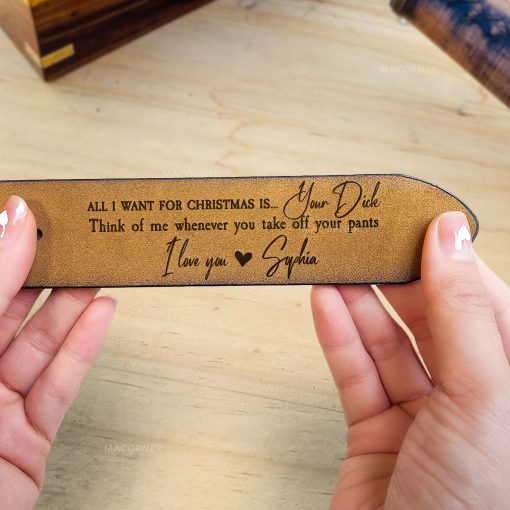 MACORNER
MACORNER
ALL I WANT FOR CHRISTMAS IS... Your Dick
Think of me whenever you take off your pants
I love you ♥ Sophia
MACORNER